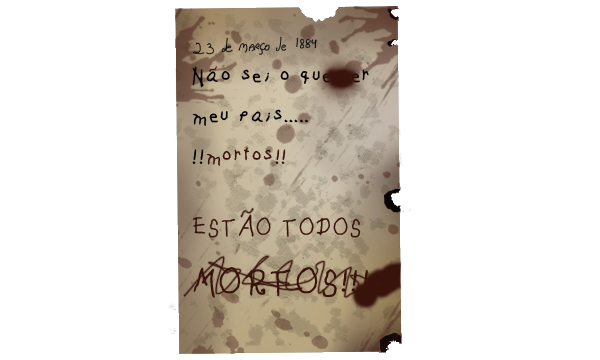 23 de MARÇO de 1884
Não sei o que er
meu pais.....
!!mortos!!
ESTÃO TODOS
MORTOS!!!